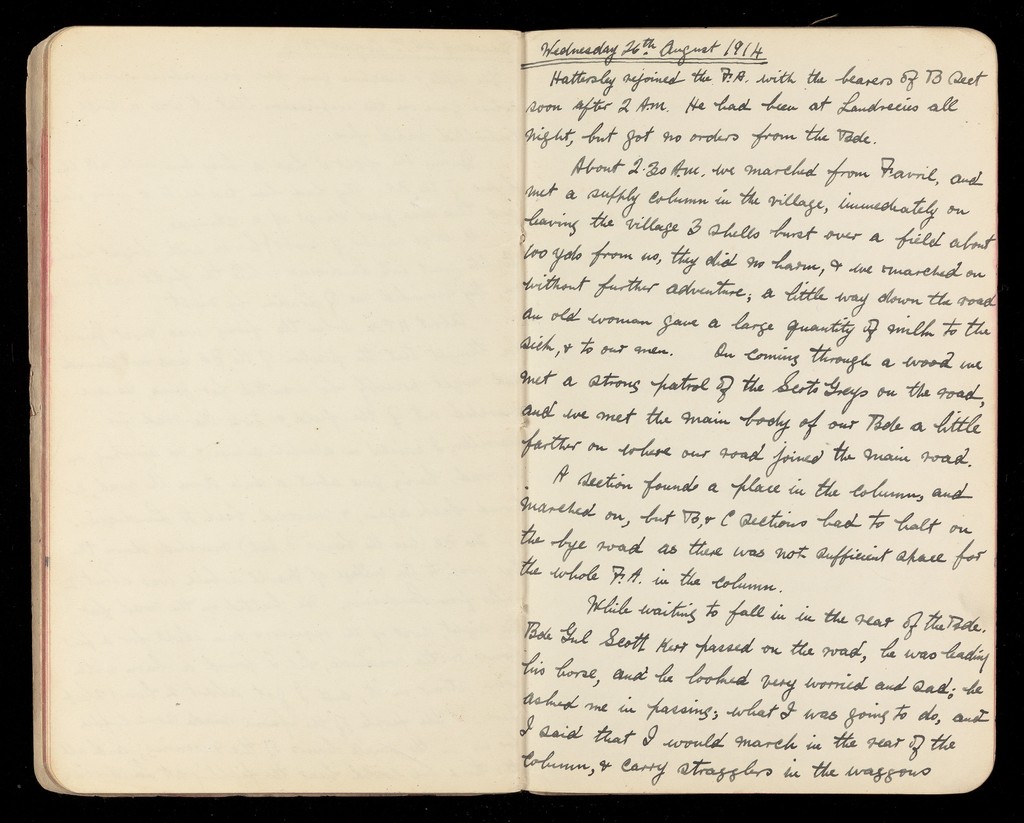 Wednesday 26th August 1914
Hattersley rejoined the F.A. with the bearers of B Sect
soon after 2 Am. He had been at Landrecies all
night, but got no orders from the Bde.
About 2.30 Am. we marched from Favril, and
met a supply column in the village, immediately on
leaving the village 3 shells burst over a field about
100 yds from us, they did no harm, & we marched on
without further adventure; a little way down the road
an old woman gave a large quantity of milk to the
sick, & to our men. On coming through a wood we
met a strong patrol of the Scots Greys on the road,
and we met the main body of our Bde a little
farther on where our road joined the main road.
A section found a place in the column, and
marched on, but B, & C sections had to halt on
the bye road as there was not sufficient space for
the whole F.A. in the column.
While waiting to fall in in the rear of the Bde.
Bde Gnl Scott Kerr passed on the road, he was leading
his horse, and he looked very worried and sad; he
asked me in passing, what I was going to do, and
I said that I would march in the rear of the
column, & carry stragglers in the waggons